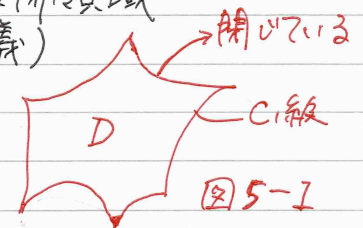 義)
閉じている
C₁級
D
図5-1